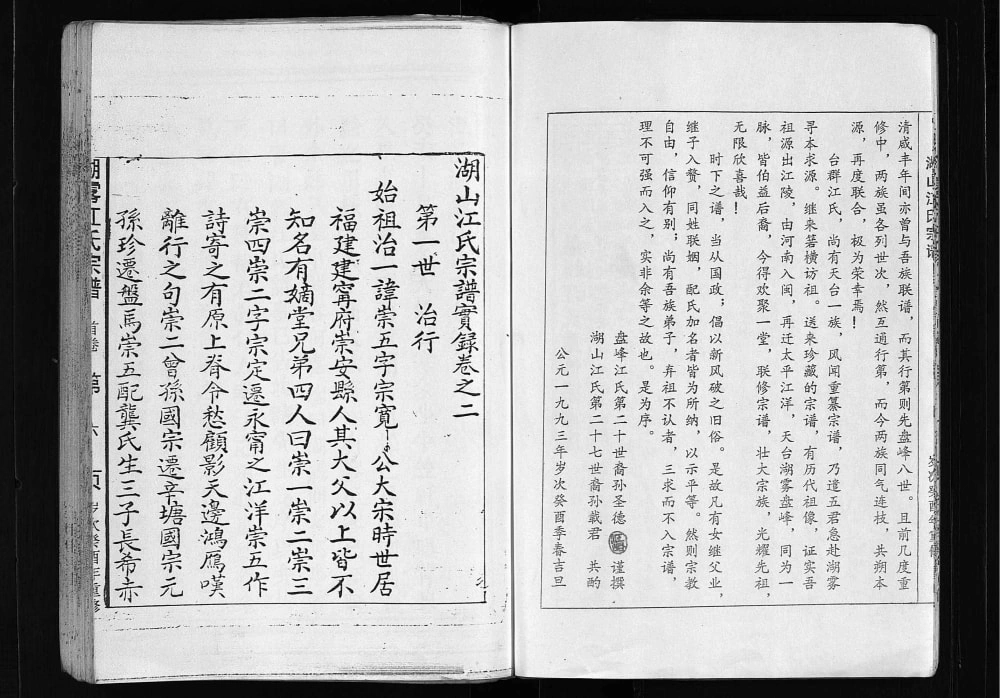 湖山江氏宗谱
清咸丰年间亦曾与吾族联谱，而其行第则先盘峰八世。且前几度重
修中，两族虽各列世次，然互通行第，而今两族同气连枝，共朔本
源，再度联合，极为荣幸焉！
台群江氏，尚有天台一族，风闻重纂宗谱，乃遣五君急赴湖雾
寻本求源。继来箬横访祖。送来珍藏的宗谱，有历代祖像，证实吾
祖源出江陵，由河南入闽，再迁太平江洋，天台湖雾盘峰，同为一
脉，皆伯益后裔，今得欢聚一堂，联修宗谱，壮大宗族，光耀先祖，
无限欣喜哉！
时下之谱，当从国政；倡以新风破之旧俗。是故凡有女继父业，
继子入赘，同姓联姻，配氏如名者皆为所纳，以示平等。然则宗教
自由，信仰有别；尚有吾族弟子，弃祖不认者，三求而不入宗谱，
理不可强而入之，实非余等之故也。是为序。
盘峰江氏第二十世裔孙圣德 谨撰
湖山江氏第二十七世裔孙载君 共酌
公元一九九三年岁次癸酉季春吉旦
湖山江氏宗譜實録卷之二
第一世 治行
始祖治一諱崇五字宗寛公大宋時世居
福建建寗府崇安縣人其大父以上皆不
知名有嫡堂兄弟四人曰崇一崇二崇三
崇四崇二字宗定遷永甯之江洋崇五作
詩寄之有原上脊令愁顧影天邊鴻鴈嘆
離行之句崇二曾孫國宗遷辛塘國宗元
孫珍遷盤馬崇五配龔氏生三子長希赤
湖雾江氏宗谱 首卷 第六页 岁次癸酉年重修